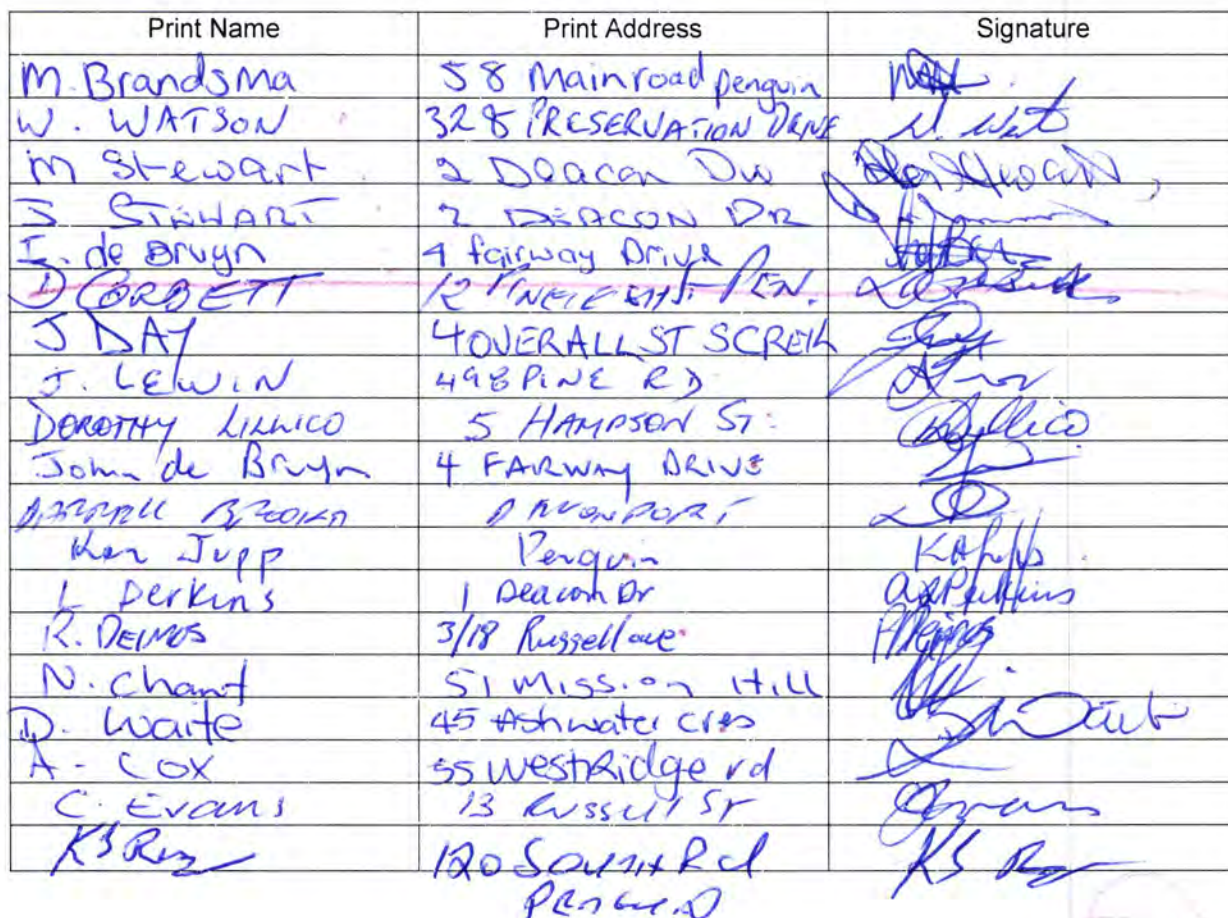 Print Name Print Address Signature
M. Brandsma 58 Mainroad penguin
W. WATSON 328 PRESERVATION DRIVE W. Wat
M Stewart 2 Deacon Dve
J. STEWART 2 DEACON DR
I. de Bruyn 4 fairway Drive
D CORBETT 12 PEN.
J DAY 4 OVERALL ST SCREEK
J. LEWIN 498 PINE RD
DOROTHY LILLICO 5 HAMPSON ST. DLillico
John de Bruyn 4 FAIRWAY DRIVE
DEVONPORT
Ken Jupp Penguin
L Perkins 1 Deacon Dr Perkins
R. DEIMOS 3/18 Russell ave
N. Chant 51 Mission Hill
D. Waite 45 Ashwater cres
A - Cox 55 WestRidge rd
C. Evans 13 Russell St
KS 120 South Rd KS
Penguin